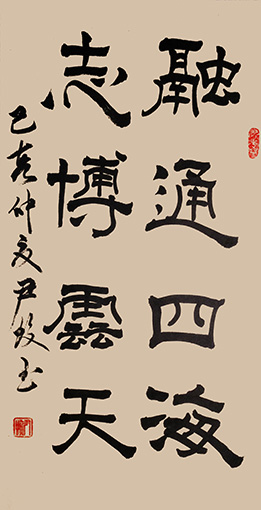 融通四海
志博雲天
己亥仲夏尹毅書